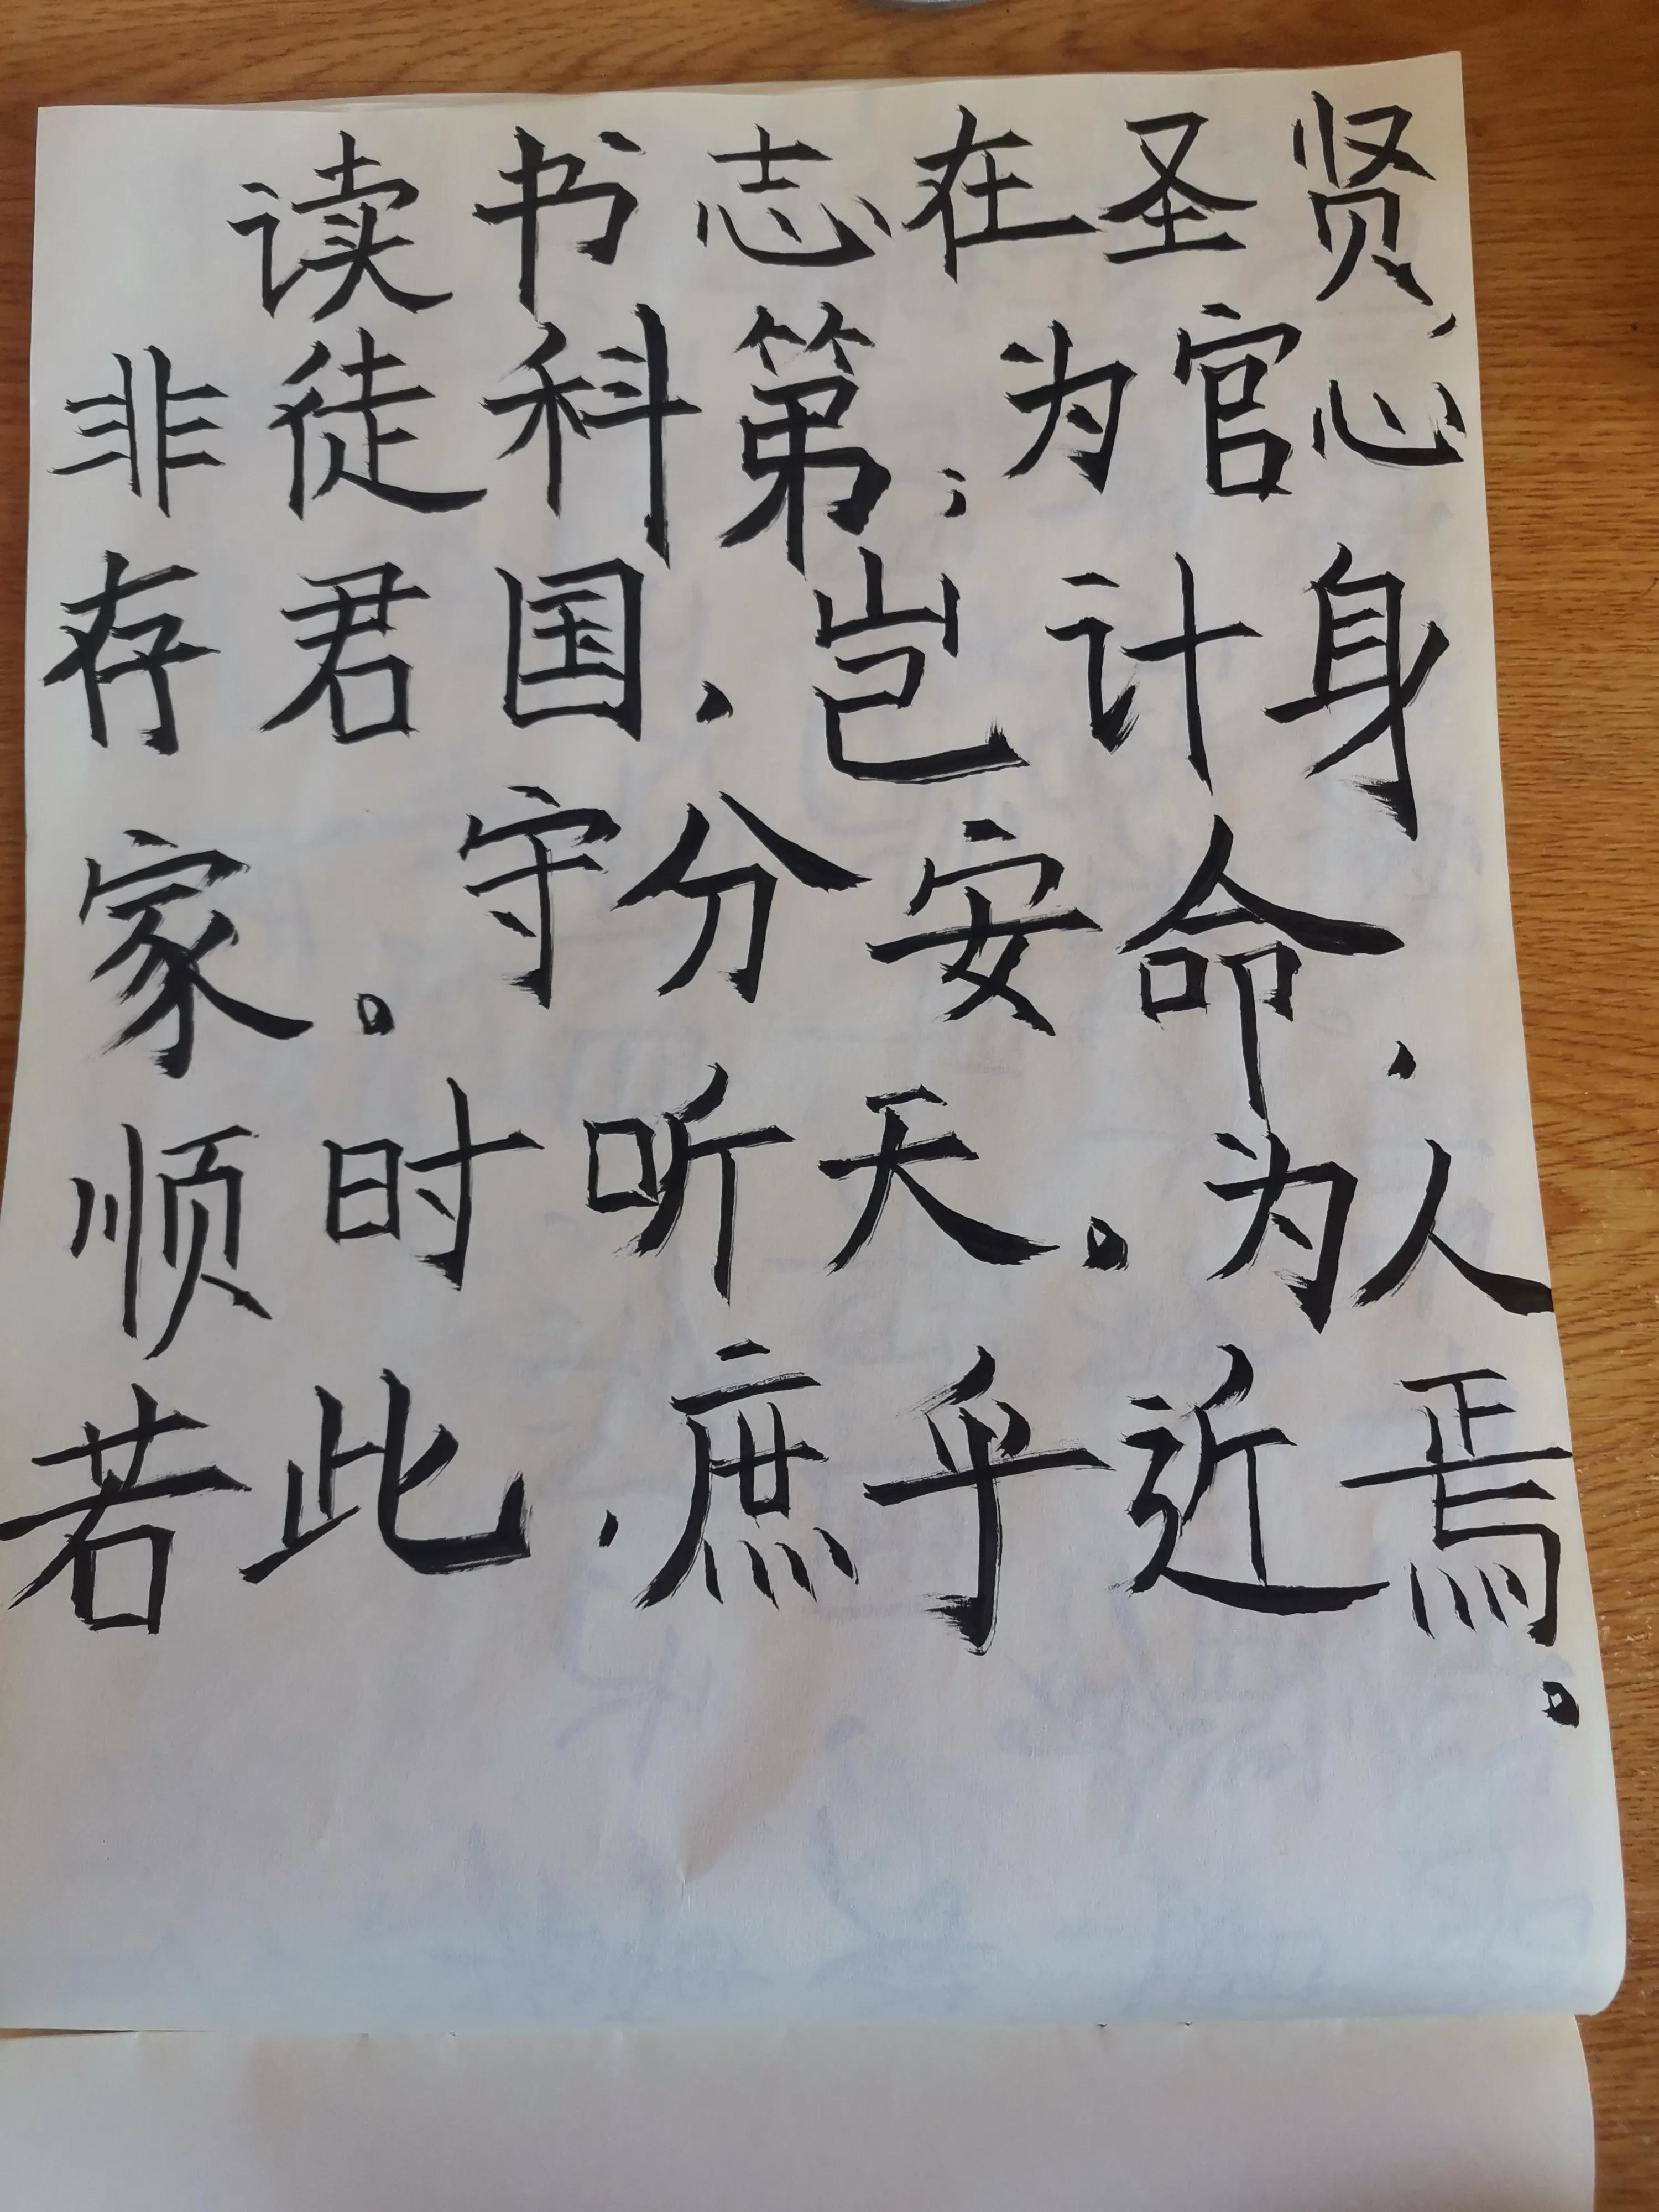 读书志在圣贤,
非徒科第;为官心
存君国,岂计身
家。守分安命,
顺时听天。为人
若此,庶乎近焉。